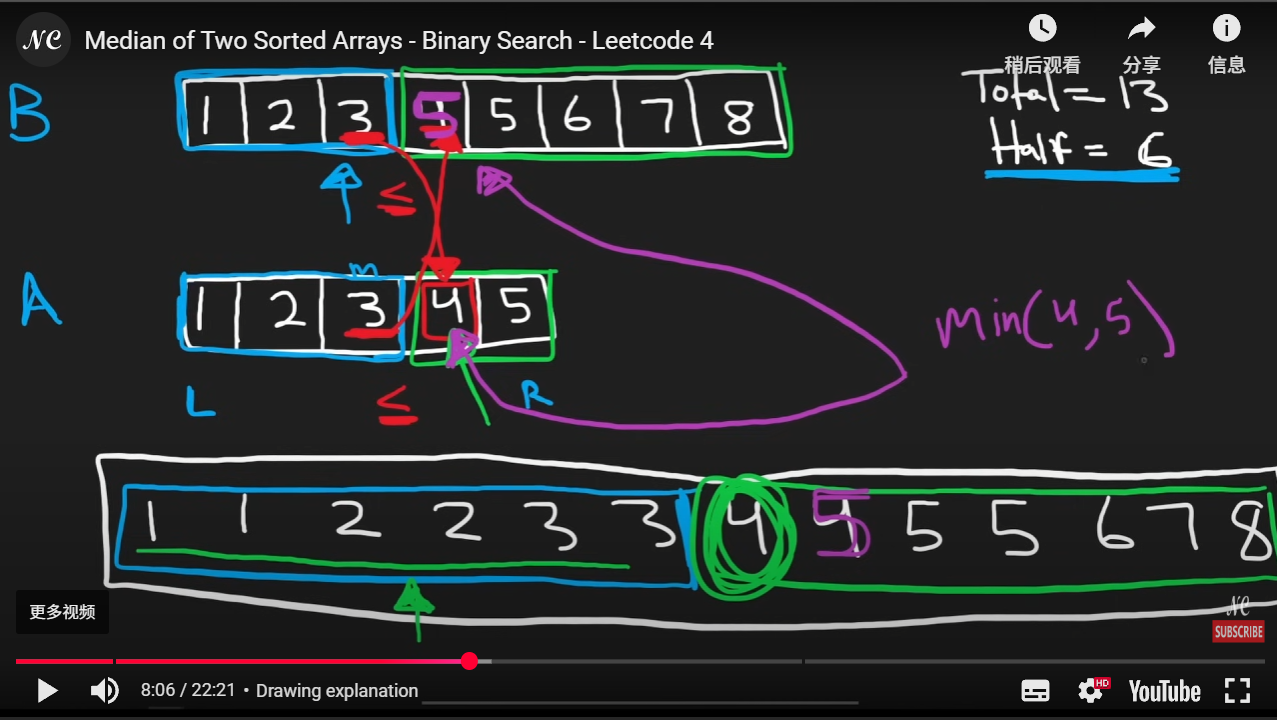 NC Median of Two Sorted Arrays - Binary Search - Leetcode 4
稍后观看 分享 信息
B 1 2 3 5 5 6 7 8
Total = 13
Half = 6
≤
m
A 1 2 3 4 5
min(4,5)
L ≤ R
1 1 2 2 3 3 4 5 5 5 6 7 8
更多视频
NC
SUBSCRIBE
8:06 / 22:21 • Drawing explanation
HD
YouTube